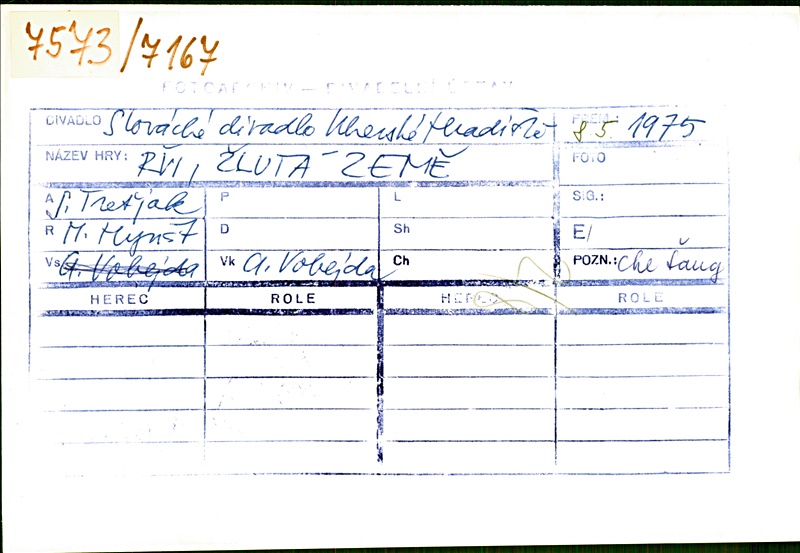 7573/7167
FOTOARCHIV — DIVADELNÍ ÚSTAV
DIVADLO Slovácké divadlo Uherské Hradiště PREM.: 8 5 1975
NÁZEV HRY: ŘVI, ŽLUTÁ ZEMĚ FOTO
A S. Tretjak P L SIG.:
R M. Hynšt D Sh E/
Vs A. Vobejda Vk A. Vobejda Ch POZN.: Che ťang
HEREC ROLE HEREC ROLE